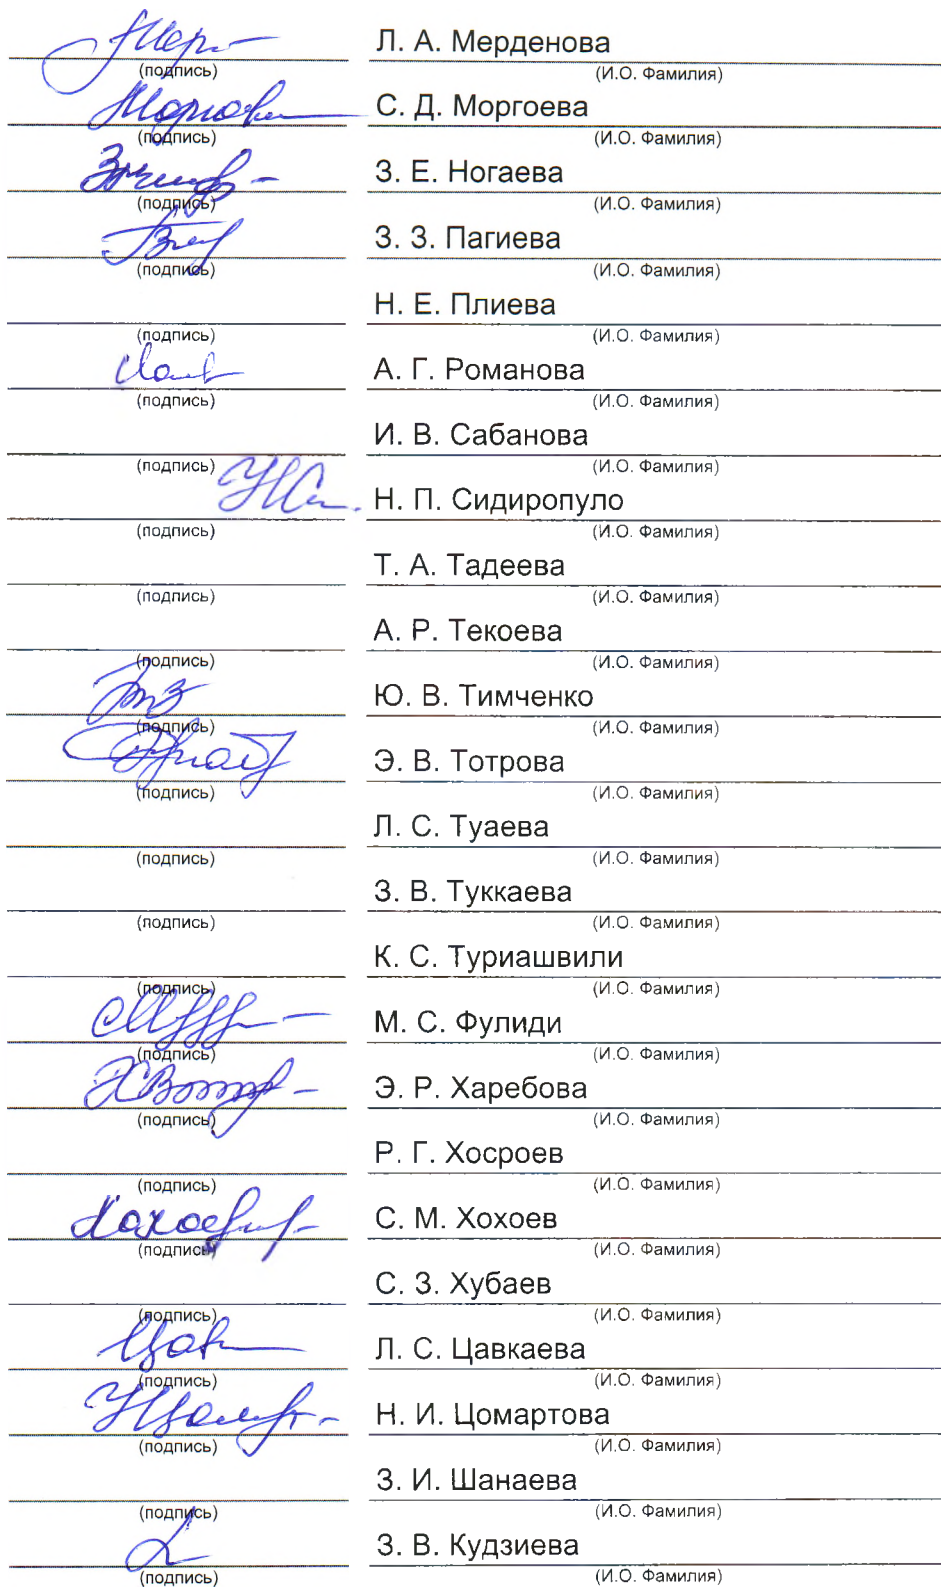 Л. А. Мерденова
(подпись) (И.О. Фамилия)
С. Д. Моргоева
(подпись) (И.О. Фамилия)
З. Е. Ногаева
(подпись) (И.О. Фамилия)
З. З. Пагиева
(подпись) (И.О. Фамилия)
Н. Е. Плиева
(подпись) (И.О. Фамилия)
А. Г. Романова
(подпись) (И.О. Фамилия)
И. В. Сабанова
(подпись) (И.О. Фамилия)
Н. П. Сидиропуло
(подпись) (И.О. Фамилия)
Т. А. Тадеева
(подпись) (И.О. Фамилия)
А. Р. Текоева
(подпись) (И.О. Фамилия)
Ю. В. Тимченко
(подпись) (И.О. Фамилия)
Э. В. Тотрова
(подпись) (И.О. Фамилия)
Л. С. Туаева
(подпись) (И.О. Фамилия)
З. В. Туккаева
(подпись) (И.О. Фамилия)
К. С. Туриашвили
(подпись) (И.О. Фамилия)
М. С. Фулиди
(подпись) (И.О. Фамилия)
Э. Р. Харебова
(подпись) (И.О. Фамилия)
Р. Г. Хосроев
(подпись) (И.О. Фамилия)
С. М. Хохоев
(подпись) (И.О. Фамилия)
С. З. Хубаев
(подпись) (И.О. Фамилия)
Л. С. Цавкаева
(подпись) (И.О. Фамилия)
Н. И. Цомартова
(подпись) (И.О. Фамилия)
З. И. Шанаева
(подпись) (И.О. Фамилия)
З. В. Кудзиева
(подпись) (И.О. Фамилия)